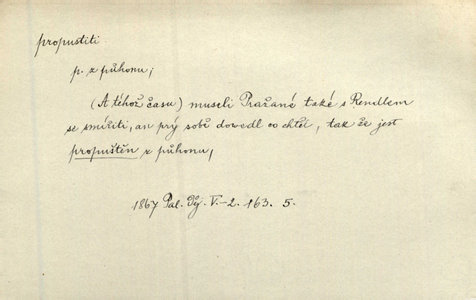 propustiti
p. z půhonu;
(A téhož času) museli Pražané také s Rendlem
se smířiti, an prý sobě dowedl co chtěl, tak že jest
propuštěn z půhonu,
1867 Pal. Děj. V.-2. 163. 5.